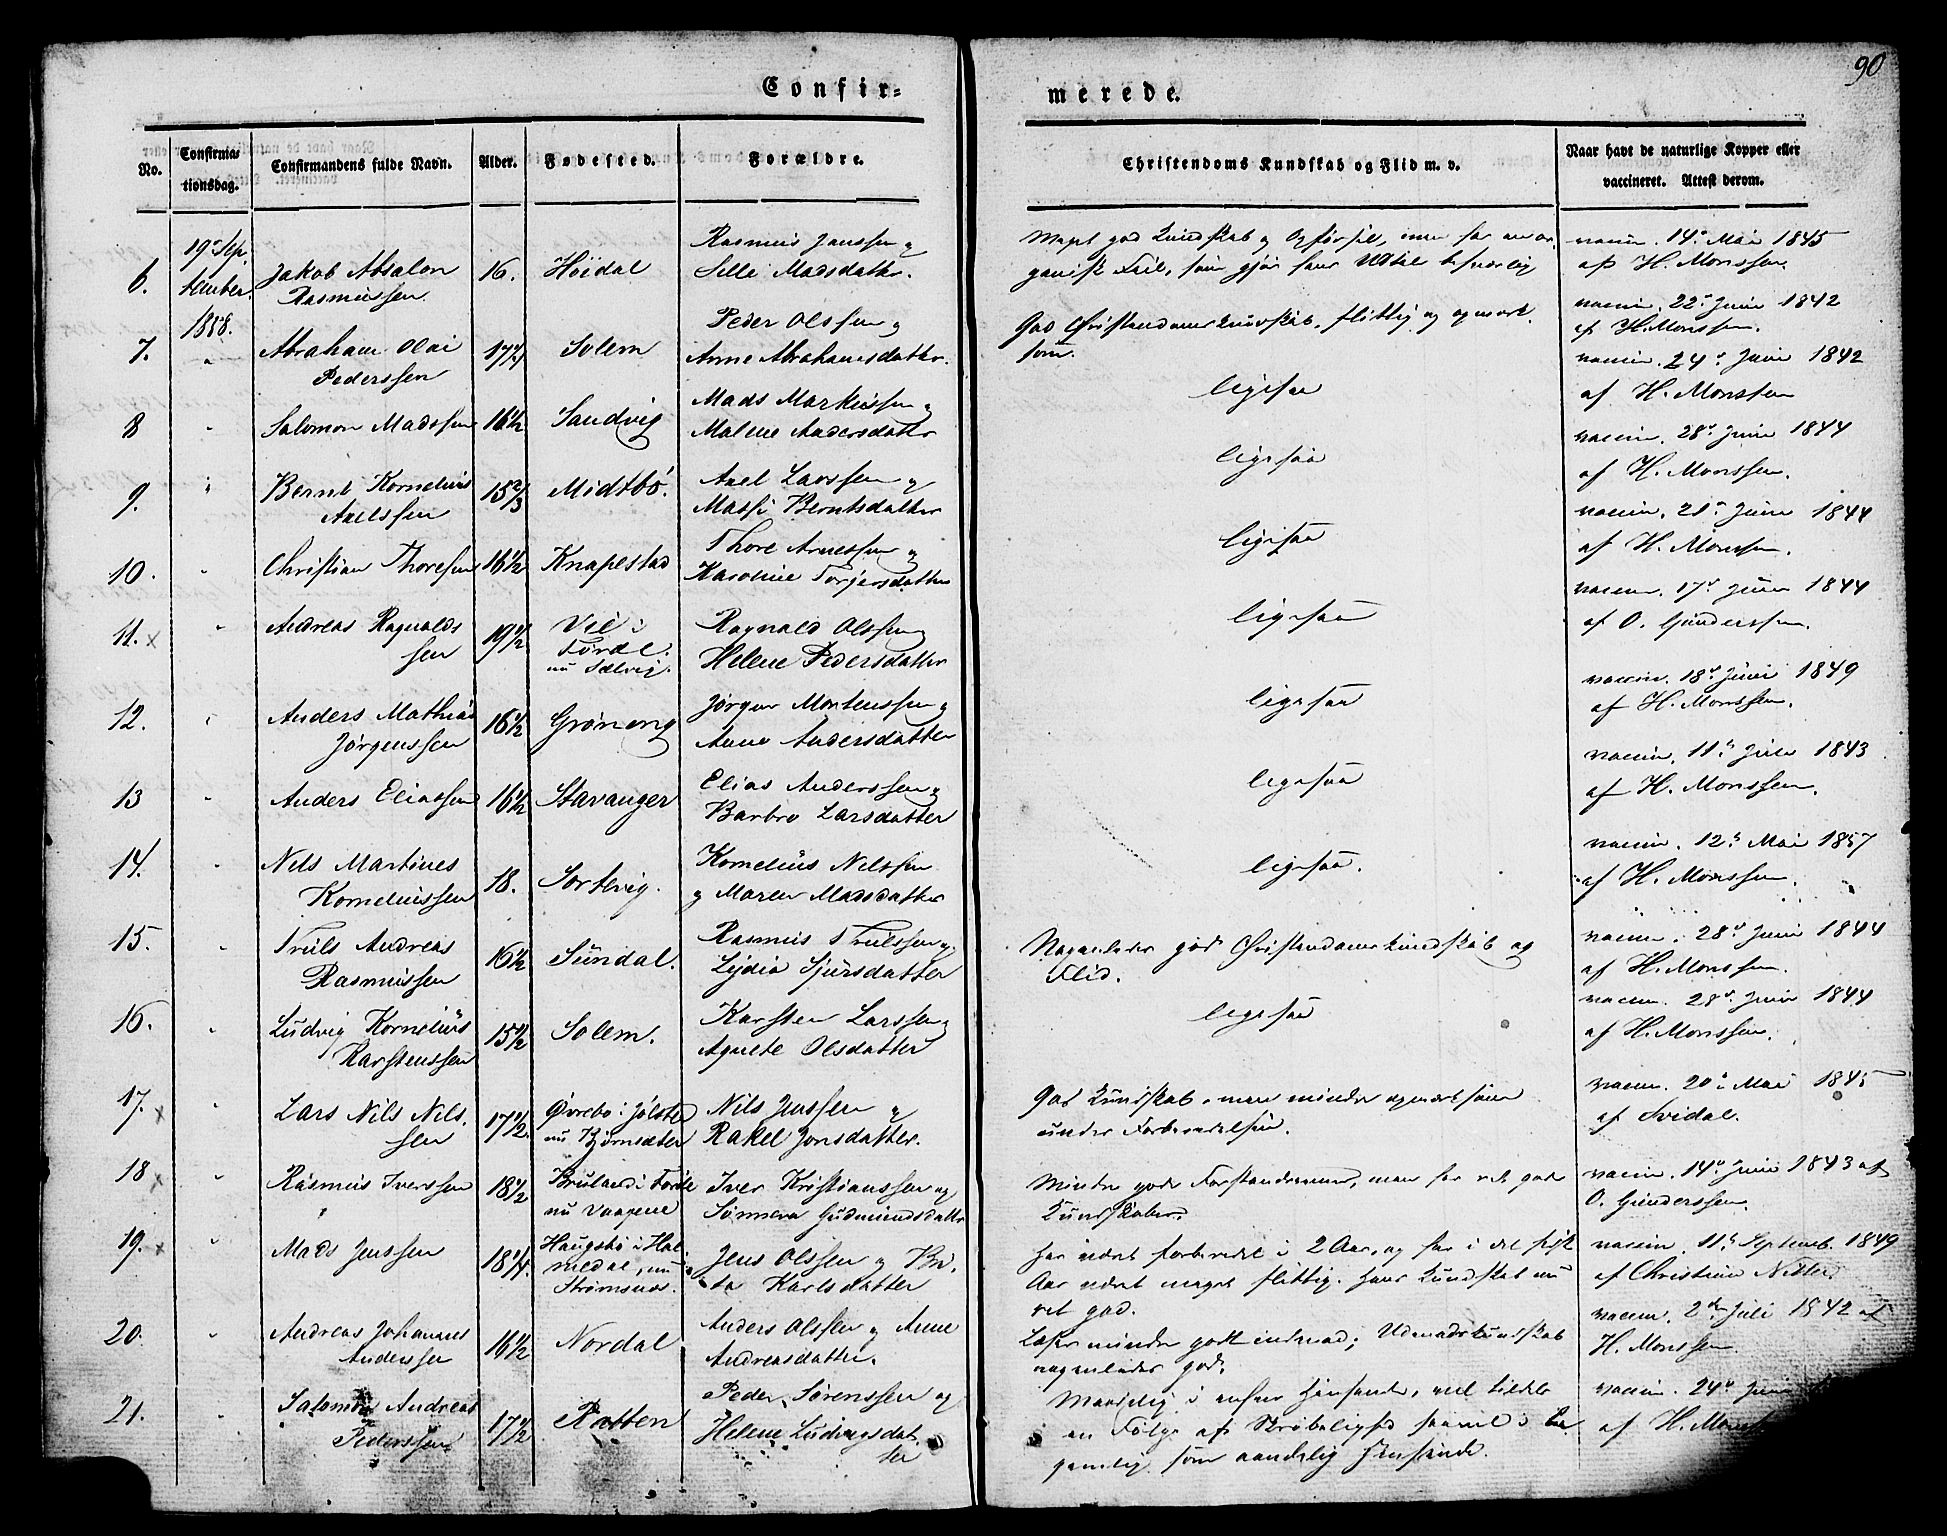 90
Confir=
merede.
No.
Confirma=
tionsdag.
Confirmandens fulde Navn.
Alder.
Fødested.
Forældre.
Christendoms Kundskab og Flid m. v.
Naar havt de naturlige Kopper eller
vaccineret. Attest derom.
19de Sep.
tember.
1858.
6.
Jakob Absalon
Rasmussen
16.
Høidal
Rasmus Janssen og
Sille Madsdatter.
Meget god Kundskab og Opførsel, men har en or
ganisk Feil, som gjør hans Udtale besværlig
vaccin. 14de Mai 1845
af H. Monssen.
7.
Abraham Olai
Pederssen
Solem
Peder Olssen og
Anne Abrahamsdatter.
God Christendomskundskab, flittig og opmærk
som.
vaccin. 22de Juni 1842
af H. Monssen.
8
Salomon Madssen
16 1/2
Sandvig
Mads Markussen og
Malene Andersdatter
ligesaa
vaccin. 24de Juni 1842
af H. Monssen
9.
Bernt Kornelius
Axelssen
15 2/3
Midtbø.
Axel Larssen og
Massi Berntsdatter
ligesaa
vaccin. 28de Juni 1844
af H. Monssen.
10.
Christian Thoressen
16 1/2
Knapestad
Thore Arnessen og
Karoline Torjersdatter
ligesaa
vaccin. 21de Juni 1844
af H. Monssen.
11. x
Andreas Ragnalds
sen
19 1/2
Vie i
Førde.
nu Sælvig.
Ragnald Olssen og
Helene Pedersdatter
ligesaa
vaccin. 17de Juni 1844
af O. Gunderssen.
12.
Anders Mathias
Jørgenssen
16 1/2
Grøneng
Jørgen Mortenssen og
Anne Andersdatter
ligesaa
vaccin. 18de Juni 1849
af H. Monssen.
13
Anders Eliassen
16 1/2
Stavanger
Elias Anderssen og
Barbro Larsdatter
ligesaa
vaccin. 11te Juli 1843
af H. Monssen.
14.
Nils Martines
Korneliussen
18.
Sortevig.
Kornelius Nilssen
og Maren Madsdatter
ligesaa.
vaccin. 12te Mai 1857
af H. Monssen.
15.
Truls Andreas
Rasmussen
16 1/2
Sundal.
Rasmus Trulssen og
Lydia Sjursdatter
Nogenledes god Christendomskundskab og
Flid.
vaccin. 28de Juni 1844
af H. Monssen.
16.
Ludvig Kornelius
Karstenssen
15 1/2
Solem.
Karsten Larssen og
Agnete Olsdatter
ligesaa
vaccin. 28de Juni 1844
af H. Monssen.
17. x
Lars Nils Nils.
sen
17 1/2.
Øvrebø i Jølster
nu Bjørnsæter
Nils Jenssen og
Rakel Jonsdatter.
God Kundskab, men mindre opmærksom
under Forberedelsen.
vaccin. 20de Mai 1845
af Svidal.
18 x
Rasmus Iverssen
18 1/2
Bruland i Førde
nu Vaagene
Iver Kristianssen og
Sønneva Gudmundsdatter
Mindre gode Forstandsevner, men har ret gode
Kundskaber.
vaccin. 14de Juni 1843 af
O. Gunderssen.
19. x
Mads Jenssen
18 1/4.
Haugsbø i Hol
medal, nu
Strømsnes.
Jens Olssen og Bri.
ta Karlsdatter
Har været forberedet i 2 Aar, og har i det sidste
Aar været meget flittig. Hans Kundskab nu
ret god.
vaccin. 11te Septemb. 1849
af Christian
20.
Andreas Johannes
Anderssen
16 1/2
Nordal
Anders Olssen og Anne
Andreasdatter.
Læser mindre godt indenad; Udenadskundskab
nogenledes god.
vaccin. 2den Juli 1842 af
H. Monssen.
21.
Salomon Andreas
Pederssen
17 1/2
Ratten
Peder Sørenssen og
Helene Ludvigsdat
ter
Maadelig i enhver Henseende, ved
en Følge af Skrøbelighed saavel i le
gemlig som aandelig Henseende.
vaccin. 24de Juni
af H. Mons